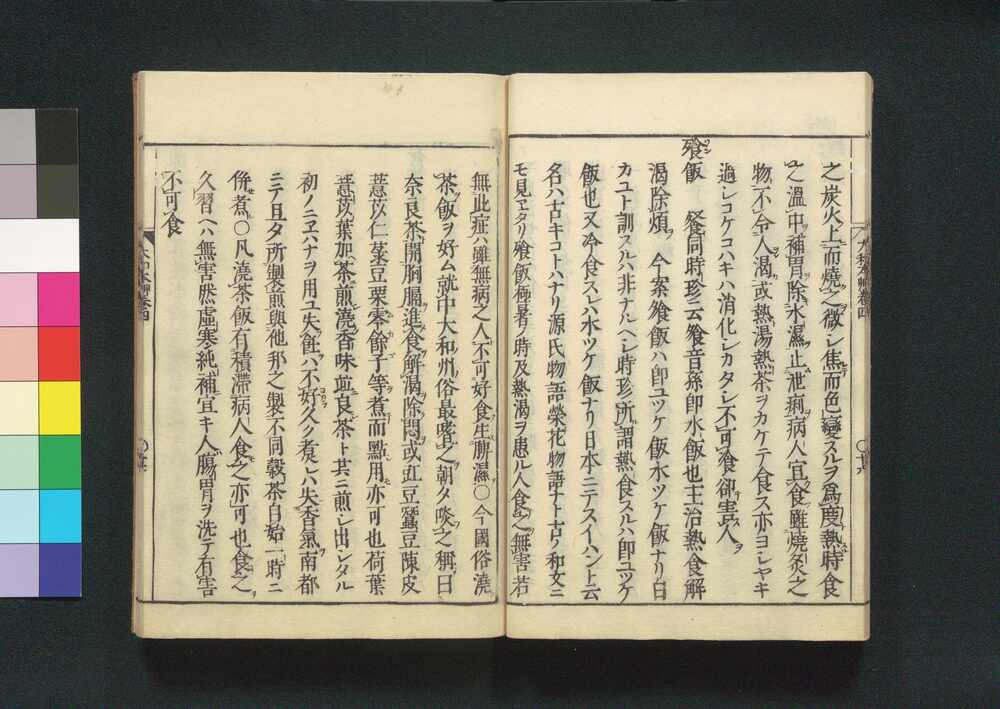 之炭火上而燒之微シ焦而色變スルヲ爲度熱時食
之溫中補胃除水濕止泄痢病人宜食雖燒灸之
物不令人渴或熱湯熱茶ヲカケテ食ス亦ヨシヤキ
過シコケコハキハ消化シカタシ不可食卻害人
飱飯 飱同時珍云飱音孫卽水飯也主治熱食解
渴除煩 今案飱飯ハ卽ユツケ飯水ツケ飯ナリ日
カユト訓スルハ非ナルヘシ時珍所謂熱食スルハ卽ユツケ
飯也又冷食スレハ水ツケ飯ナリ日本ニテスイハント云
名ハ古キコトハナリ源氏物語榮花物語ナト古ノ和文ニ
モ見ヱタリ飱飯極暑ノ時及熱渴ヲ患ル人食之無害若
無此症ハ雖無病之人不可好食生脾濕○今國俗澆
茶飯ヲ好ム就中大和州俗最嗜之朝夕啖之稱曰
奈良茶開胸膈進食解渴除悶或豇豆蠶豆陳皮
薏苡仁菉豆栗零餘子等煮而點用亦可也荷葉
薏苡葉加茶煎澆香味並良茶ト其三煎シ出シタル
初ノニヱハナヲ用ユ失飪ハ不好久ク煮レハ失香氣南都
ニテ旦夕所製煎與他邦之製不同穀茶自始一時ニ
倂煮○凡澆茶飯有積滯病人食之亦可也食之
久習ヘハ無害然虛寒純補宜キ人腸胃ヲ洗テ有害
不可食
大和本艸卷四